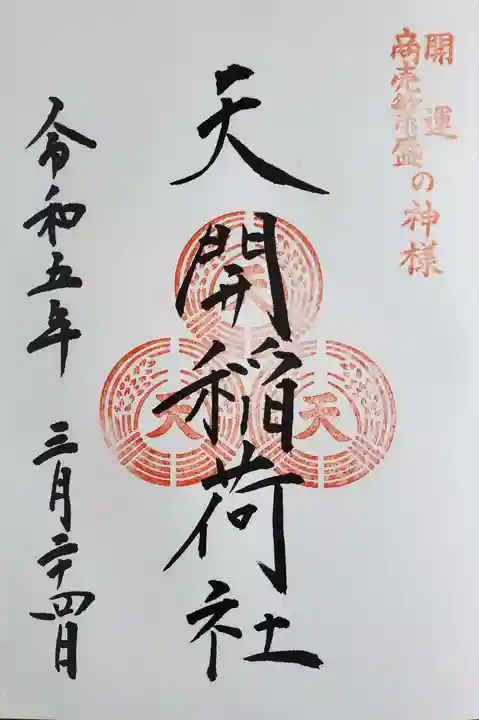 開運
商売繁盛の神様
天開稲荷社
天
天
天
令和五年 三月二十四日